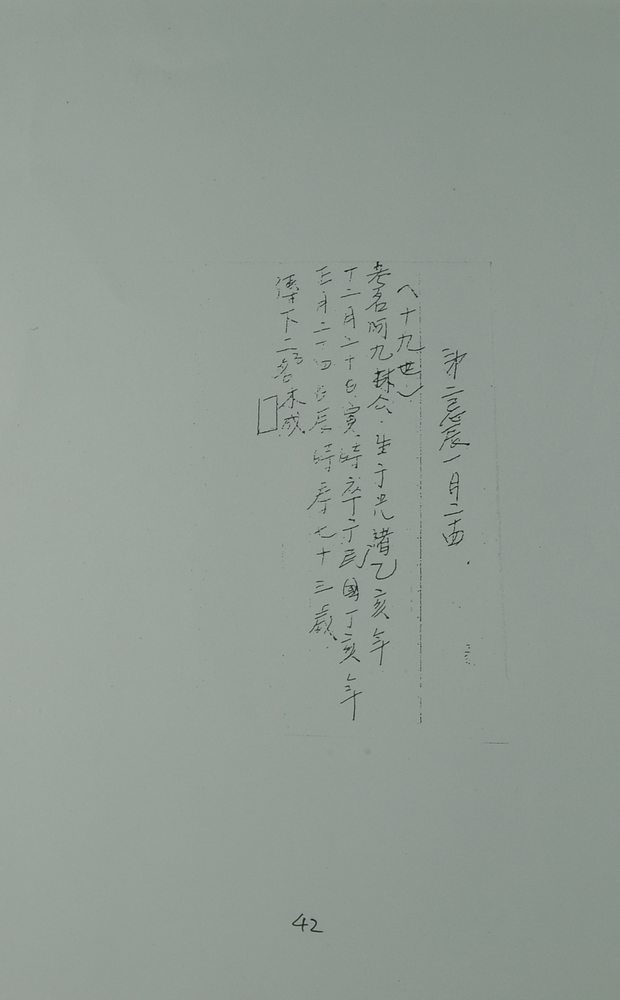 第二忌辰一月二十四
(十九世)
考名阿九林公生于光緒乙亥年
十二月二十日寅時卒于民國丁亥年
三月二十四日辰時享七十三歲
下二 木成
42